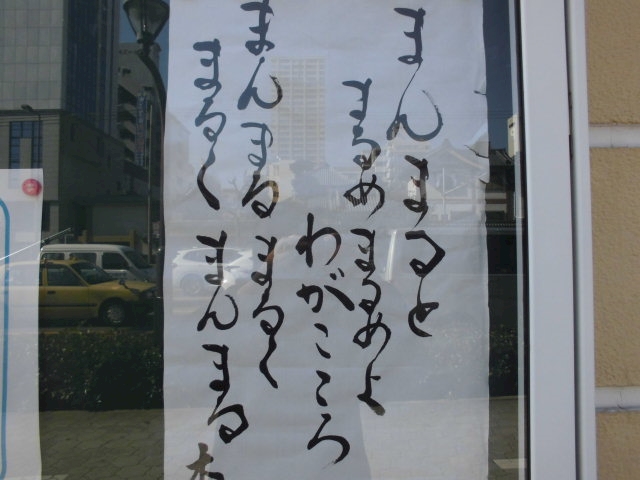 まんまると
まるめまるめよ
わがこころ
まんまるまるく
まるくまんまる
木